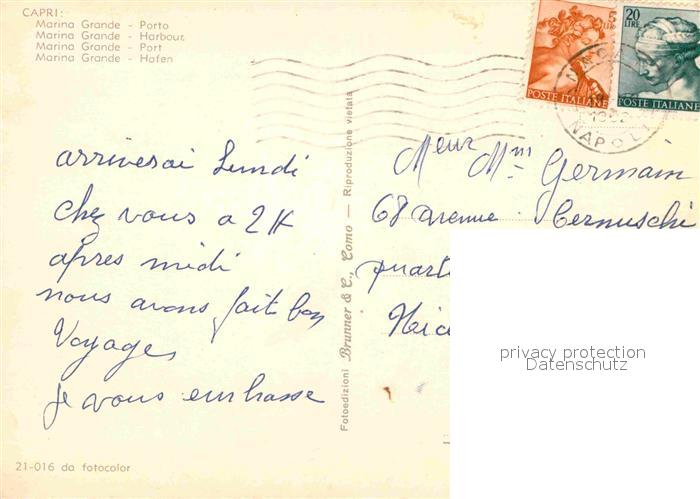 CAPRI:
Marina Grande - Porto
Marina Grande - Harbour
Marina Grande - Port
Marina Grande - Hafen
5 LIRE
20 LIRE
POSTE ITALIANE
POSTE ITALIANE
NAPOLI
arriverai Lundi
chez vous a 2H
après midi
nous avons fait bon
Voyages
je vous embrasse
Fotoedizioni Brunner & C., Como — Riproduzione vietata
Meur Mm Germain
68 avenue Cernuschi
quart
Nic
privacy protection
Datenschutz
21-016 da fotocolor